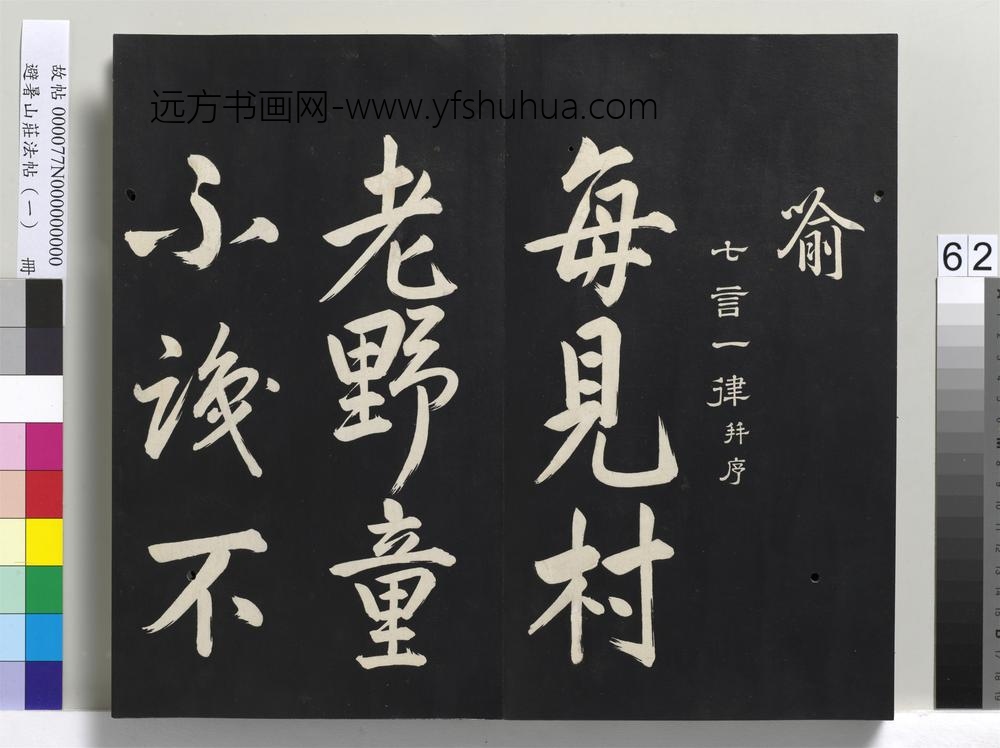 远方书画网-www.yfshuhua.com
喻
七言一律并序
每見村
老野童
不識不
故帖 000077N000000000
避暑山莊法帖（一） 冊
62